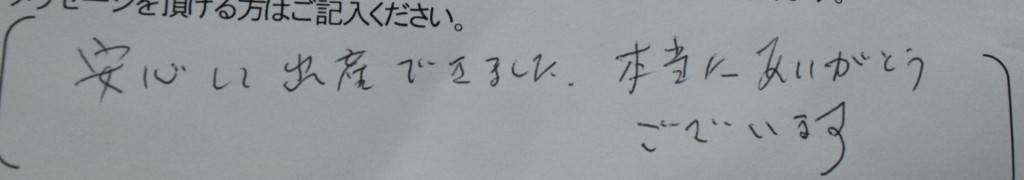 メッセージを頂ける方はご記入ください。
安心して出産できました。本当にありがとう
ございます